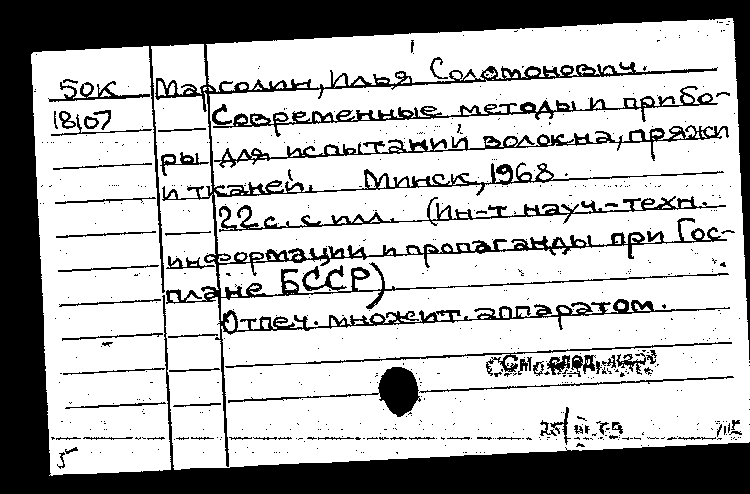 50К Марголин, Илья Соломонович.
18107 Современные методы и прибо-
ры для испытаний волокна, пряжи
и тканей. Минск, 1968.
22 с. с илл. (Ин-т науч.-техн.
информации и пропаганды при Гос-
плане БССР).
Отпеч. множит. аппаратом.
См. след.
25/III 69
5